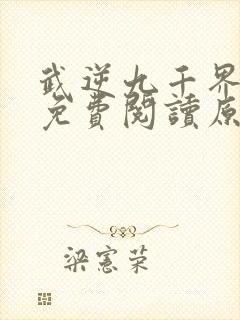 武逆九千界
免費閱讀原
梁憲榮